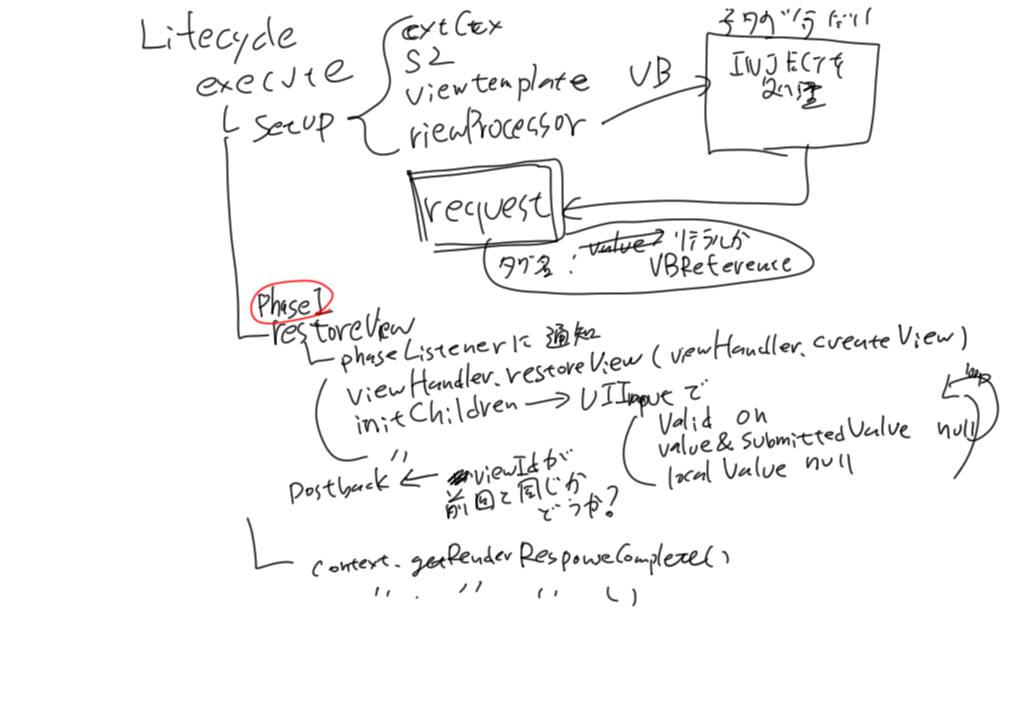 Lifecycle
execute
setup
extCtx
S2
viewtemplate
viewProcessor
VB
INJECTを
処理
request
タグ名: value? リテラルか
VBReference
Phase1
restoreView
phaseListenerに通知
viewHandler.restoreView (viewHandler.createView)
initChildren → UIInputで
Valid on
value&SubmittedValue null
local Value null
loop
〃
Postback ← viewIdが
前回と同じか
どうか?
context.getRenderResponseComplete()
〃 . 〃 〃 ()